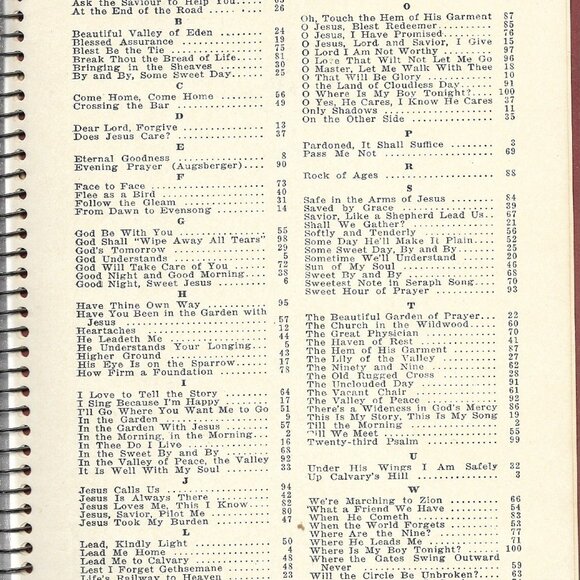 Ask the Saviour to Help You
At the End of the Road ........ 26
B
Beautiful Valley of Eden ........ 24
Blessed Assurance ............ 19
Blest Be the Tie .............. 75
Break Thou the Bread of Life .... 81
Bringing in the Sheaves ........ 30
By and By, Some Sweet Day ...... 25
C
Come Home, Come Home ........ 56
Crossing the Bar .............. 49
D
Dear Lord, Forgive ............ 13
Does Jesus Care? .............. 37
E
Eternal Goodness .............. 8
Evening Prayer (Augsberger) .... 90
F
Face to Face .................. 73
Flee as a Bird ................ 40
Follow the Gleam .............. 31
From Dawn to Evensong ........ 14
G
God Be With You .............. 55
God Shall "Wipe Away All Tears" 98
God's Tomorrow .............. 29
God Understands .............. 5
God Will Take Care of You ...... 72
Good Night and Good Morning .... 38
Good Night, Sweet Jesus ........ 6
H
Have Thine Own Way .......... 95
Have You Been in the Garden with
Jesus ...................... 57
Heartaches .................. 12
He Leadeth Me ................ 44
He Understands Your Longing .... 5
Higher Ground ................ 43
His Eye Is on the Sparrow ...... 17
How Firm a Foundation ........ 78
I
I Love to Tell the Story ........ 64
I Sing Because I'm Happy ...... 17
I'll Go Where You Want Me to Go 51
In the Garden ................ 9
In the Garden With Jesus ...... 57
In the Morning, in the Morning .. 2
In Thee Do I Live ............ 16
In the Sweet By and By ........ 68
In the Valley of Peace, the Valley 92
It Is Well With My Soul ........ 33
J
Jesus Calls Us ................ 94
Jesus Is Always There ........ 42
Jesus Loves Me, This I Know .... 82
Jesus, Savior, Pilot Me ........ 80
Jesus Took My Burden ........ 47
L
Lead, Kindly Light ............ 50
Lead Me Home ................ 4
Lead Me to Calvary ............ 48
Lest I Forget Gethsemane ...... 48
Life's Railway to Heaven ...... 23
O
Oh, Touch the Hem of His Garment 87
O Jesus, Blest Redeemer ........ 85
O Jesus, I Have Promised ...... 76
O Jesus, Lord and Savior, I Give 15
O Lord I Am Not Worthy ...... 97
O Love That Wilt Not Let Me Go 96
O Master, Let Me Walk With Thee 18
O That Will Be Glory .......... 10
O the Land of Cloudless Day .... 91
O Where Is My Boy Tonight? .... 100
O Yes, He Cares, I Know He Cares 37
Only Shadows ................ 11
On the Other Side ............ 35
P
Pardoned, It Shall Suffice ...... 3
Pass Me Not .................. 69
R
Rock of Ages .................. 88
S
Safe in the Arms of Jesus ...... 84
Saved by Grace ................ 39
Savior, Like a Shepherd Lead Us 67
Shall We Gather? .............. 21
Softly and Tenderly ............ 56
Some Day He'll Make It Plain .... 52
Some Sweet Day, By and By .... 25
Sometime We'll Understand .... 20
Sun of My Soul .............. 46
Sweet By and By .............. 68
Sweetest Note in Seraph Song .... 70
Sweet Hour of Prayer .......... 93
T
The Beautiful Garden of Prayer .. 22
The Church in the Wildwood .... 60
The Great Physician .......... 70
The Haven of Rest ............ 41
The Hem of His Garment ...... 87
The Lily of the Valley ........ 27
The Ninety and Nine .......... 62
The Old Rugged Cross ........ 28
The Unclouded Day ............ 91
The Vacant Chair .............. 61
The Valley of Peace ............ 92
There's a Wideness in God's Mercy 86
This Is My Story, This Is My Song 19
Till the Morning .............. 2
Till We Meet .................. 55
Twenty-third Psalm ............ 99
U
Under His Wings I Am Safely .. 32
Up Calvary's Hill .............. 3
W
We're Marching to Zion ........ 66
What a Friend We Have ........ 54
When He Cometh .............. 83
When the World Forgets ........ 53
Where Are the Nine? .......... 77
Where He Leads Me .......... 71
Where Is My Boy Tonight? .... 100
Where the Gates Swing Outward
Never ...................... 59
Will the Circle Be Unbroken? .... 63